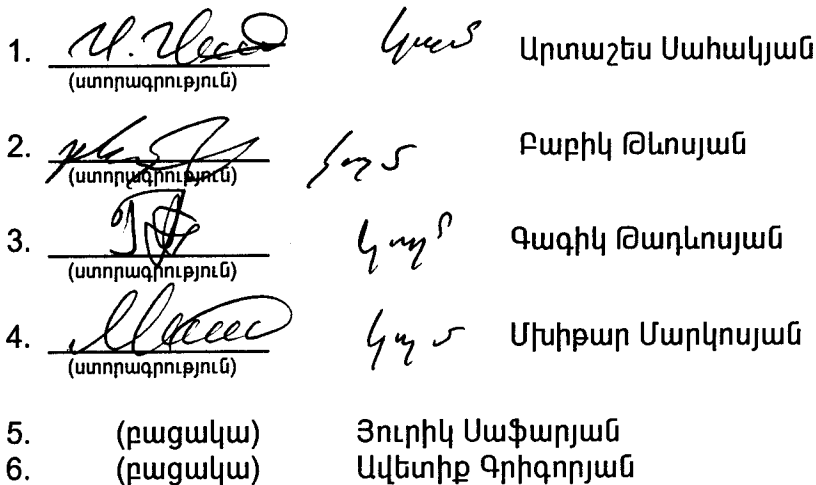 1. կողմ Արտաշես Սահակյան
(ստորագրություն)
2. կողմ Բաբիկ Թևոսյան
(ստորագրություն)
3. կողմ Գագիկ Թադևոսյան
(ստորագրություն)
4. կողմ Մխիթար Մարկոսյան
(ստորագրություն)
5. (բացակա) Յուրիկ Սաֆարյան
6. (բացակա) Ավետիք Գրիգորյան